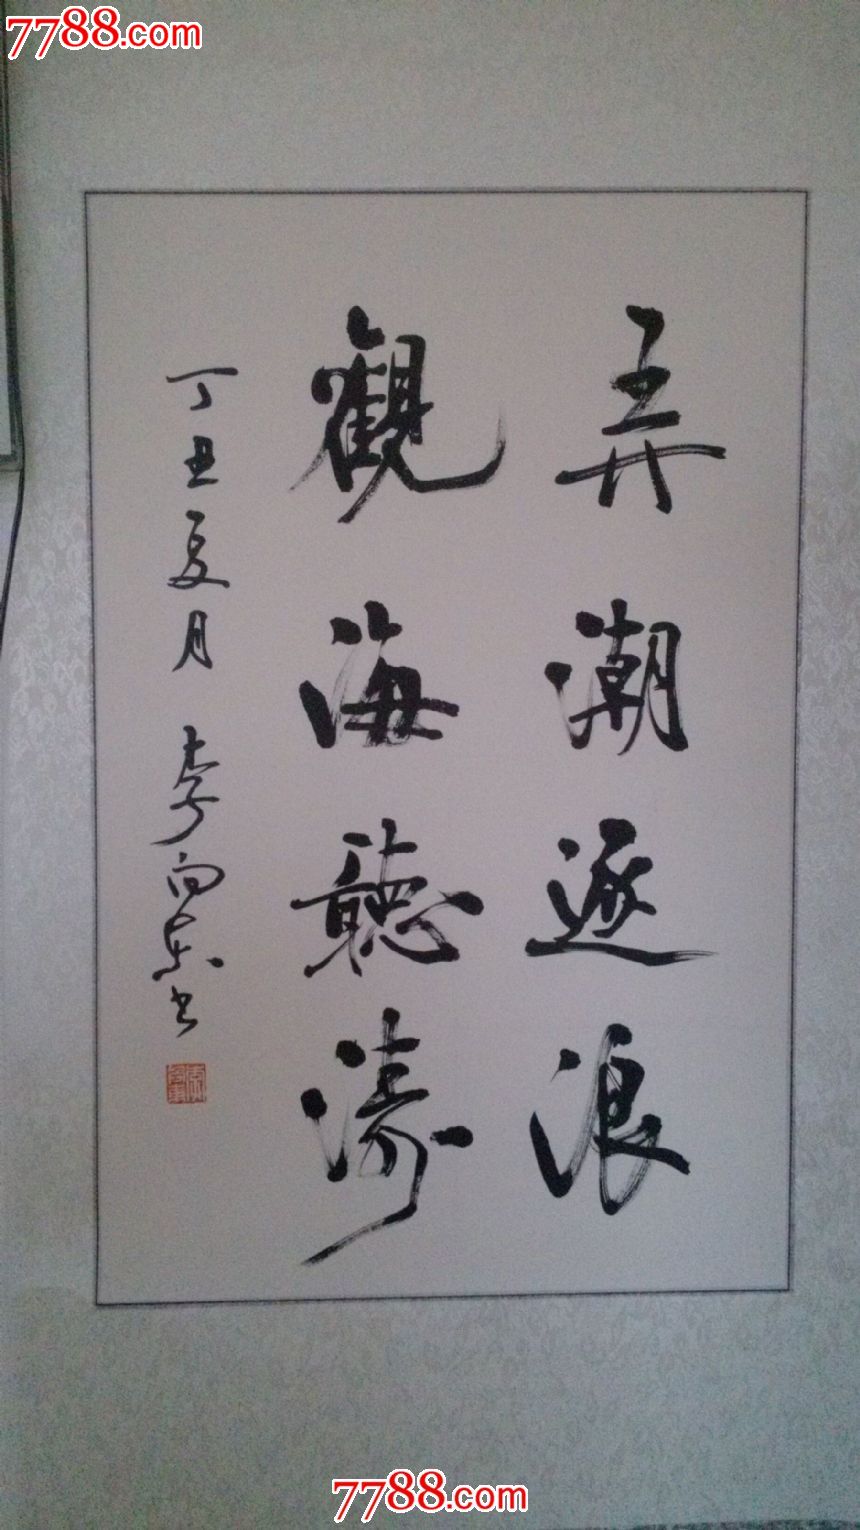 7788.com
弄潮逐浪
觀海聽濤
丁丑夏月 李向东书
7788.com